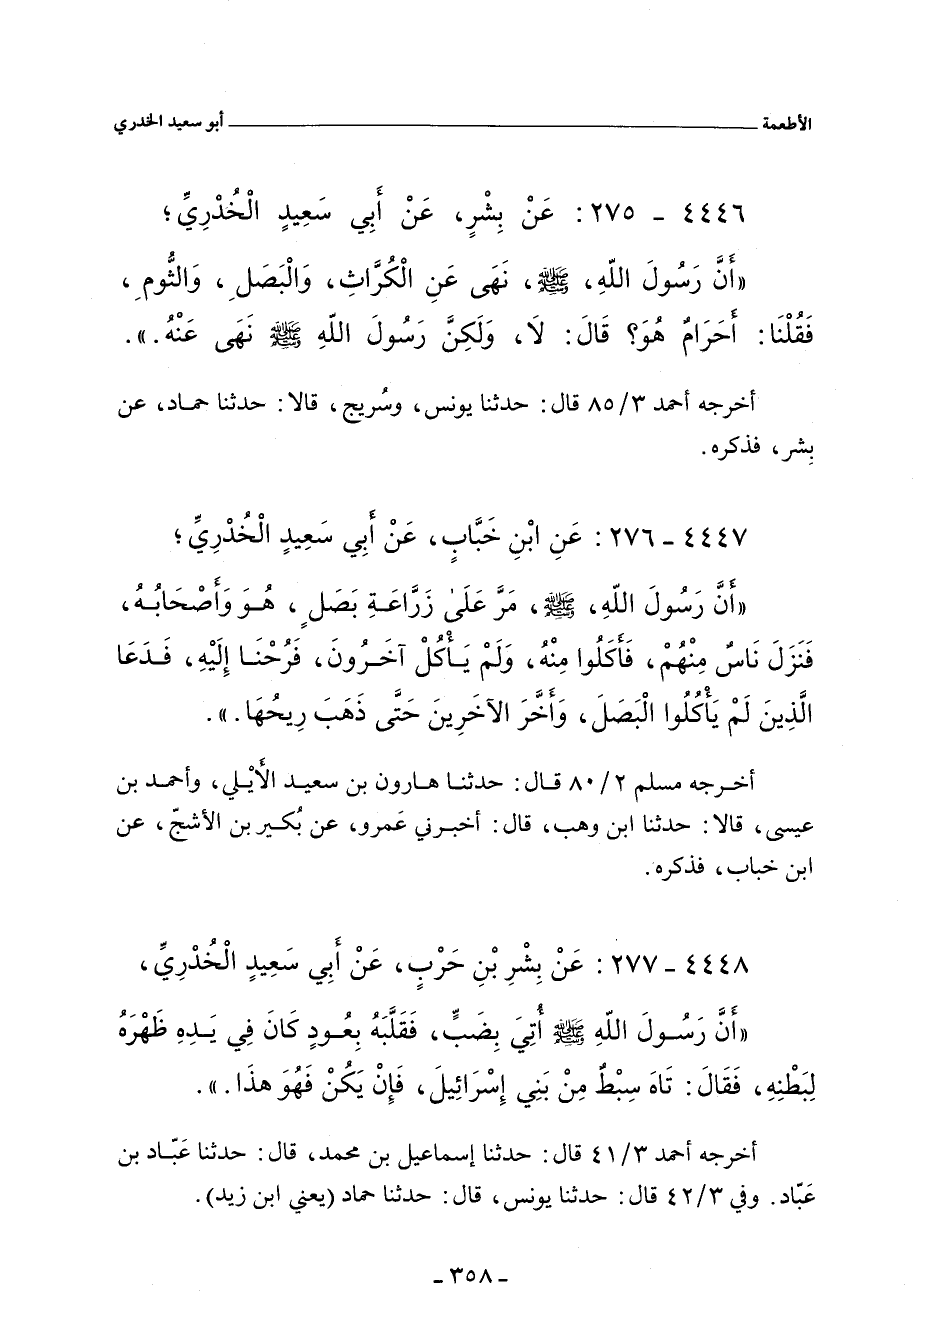 الأطعمة ــــــ أبو سعيد الخدري
٤٤٤٦ ـ ٢٧٥ : عَنْ بِشْرٍ، عَنْ أَبِي سَعِيدٍ الْخُدْرِيِّ؛
«أَنَّ رَسُولَ اللّهِ، ﷺ، نَهَى عَنِ الْكُرَّاثِ، وَالْبَصَلِ، وَالثُّومِ،
فَقُلْنَا: أَحَرَامٌ هُوَ؟ قَالَ: لَا، وَلَكِنَّ رَسُولَ اللّهِ ﷺ نَهَى عَنْهُ.».
أخرجه أحمد ٣/٨٥ قال: حدثنا يونس، وسُريج، قالا: حدثنا حماد، عن
بِشر، فذكره.
٤٤٤٧ ـ ٢٧٦ : عَنِ ابْنِ خَبَّابٍ، عَنْ أَبِي سَعِيدٍ الْخُدْرِيِّ؛
«أَنَّ رَسُولَ اللّهِ، ﷺ، مَرَّ عَلَىٰ زَرَّاعَةِ بَصَلٍ، هُوَ وَأَصْحَابُهُ،
فَنَزَلَ نَاسٌ مِنْهُمْ، فَأَكَلُوا مِنْهُ، وَلَمْ يَأْكُلْ آخَرُونَ، فَرُحْنَا إِلَيْهِ، فَدَعَا
الَّذِينَ لَمْ يَأْكُلُوا الْبَصَلَ، وَأَخَّرَ الآخَرِينَ حَتَّى ذَهَبَ رِيحُهَا.».
أخرجه مسلم ٢/٨٠ قال: حدثنا هارون بن سعيد الأَيْلي، وأحمد بن
عيسى، قالا: حدثنا ابن وهب، قال: أخبرني عَمرو، عن بُكير بن الأشجّ، عن
ابن خباب، فذكره.
٤٤٤٨ ـ ٢٧٧ : عَنْ بِشْرِ بْنِ حَرْبٍ، عَنْ أَبِي سَعِيدٍ الْخُدْرِيِّ،
«أَنَّ رَسُولَ اللّهِ ﷺ أُتِيَ بِضَبٍّ، فَقَلَّبَهُ بِعُودٍ كَانَ فِي يَدِهِ ظَهْرَهُ
لِبَطْنِهِ، فَقَالَ: تَاهَ سِبْطٌ مِنْ بَنِي إِسْرَائِيلَ، فَإِنْ يَكُنْ فَهُوَ هذَا.».
أخرجه أحمد ٣/٤١ قال: حدثنا إسماعيل بن محمد، قال: حدثنا عَبّاد بن
عَبّاد. وفي ٣/٤٢ قال: حدثنا يونس، قال: حدثنا حماد (يعني ابن زيد).
ـ ٣٥٨ ـ